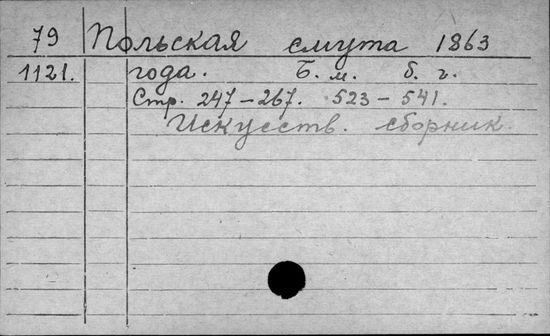 79 Польская смута 1863
1121. года. Б. м. б. г.
Стр. 247-267. 523-541.
Искусств. сборник.